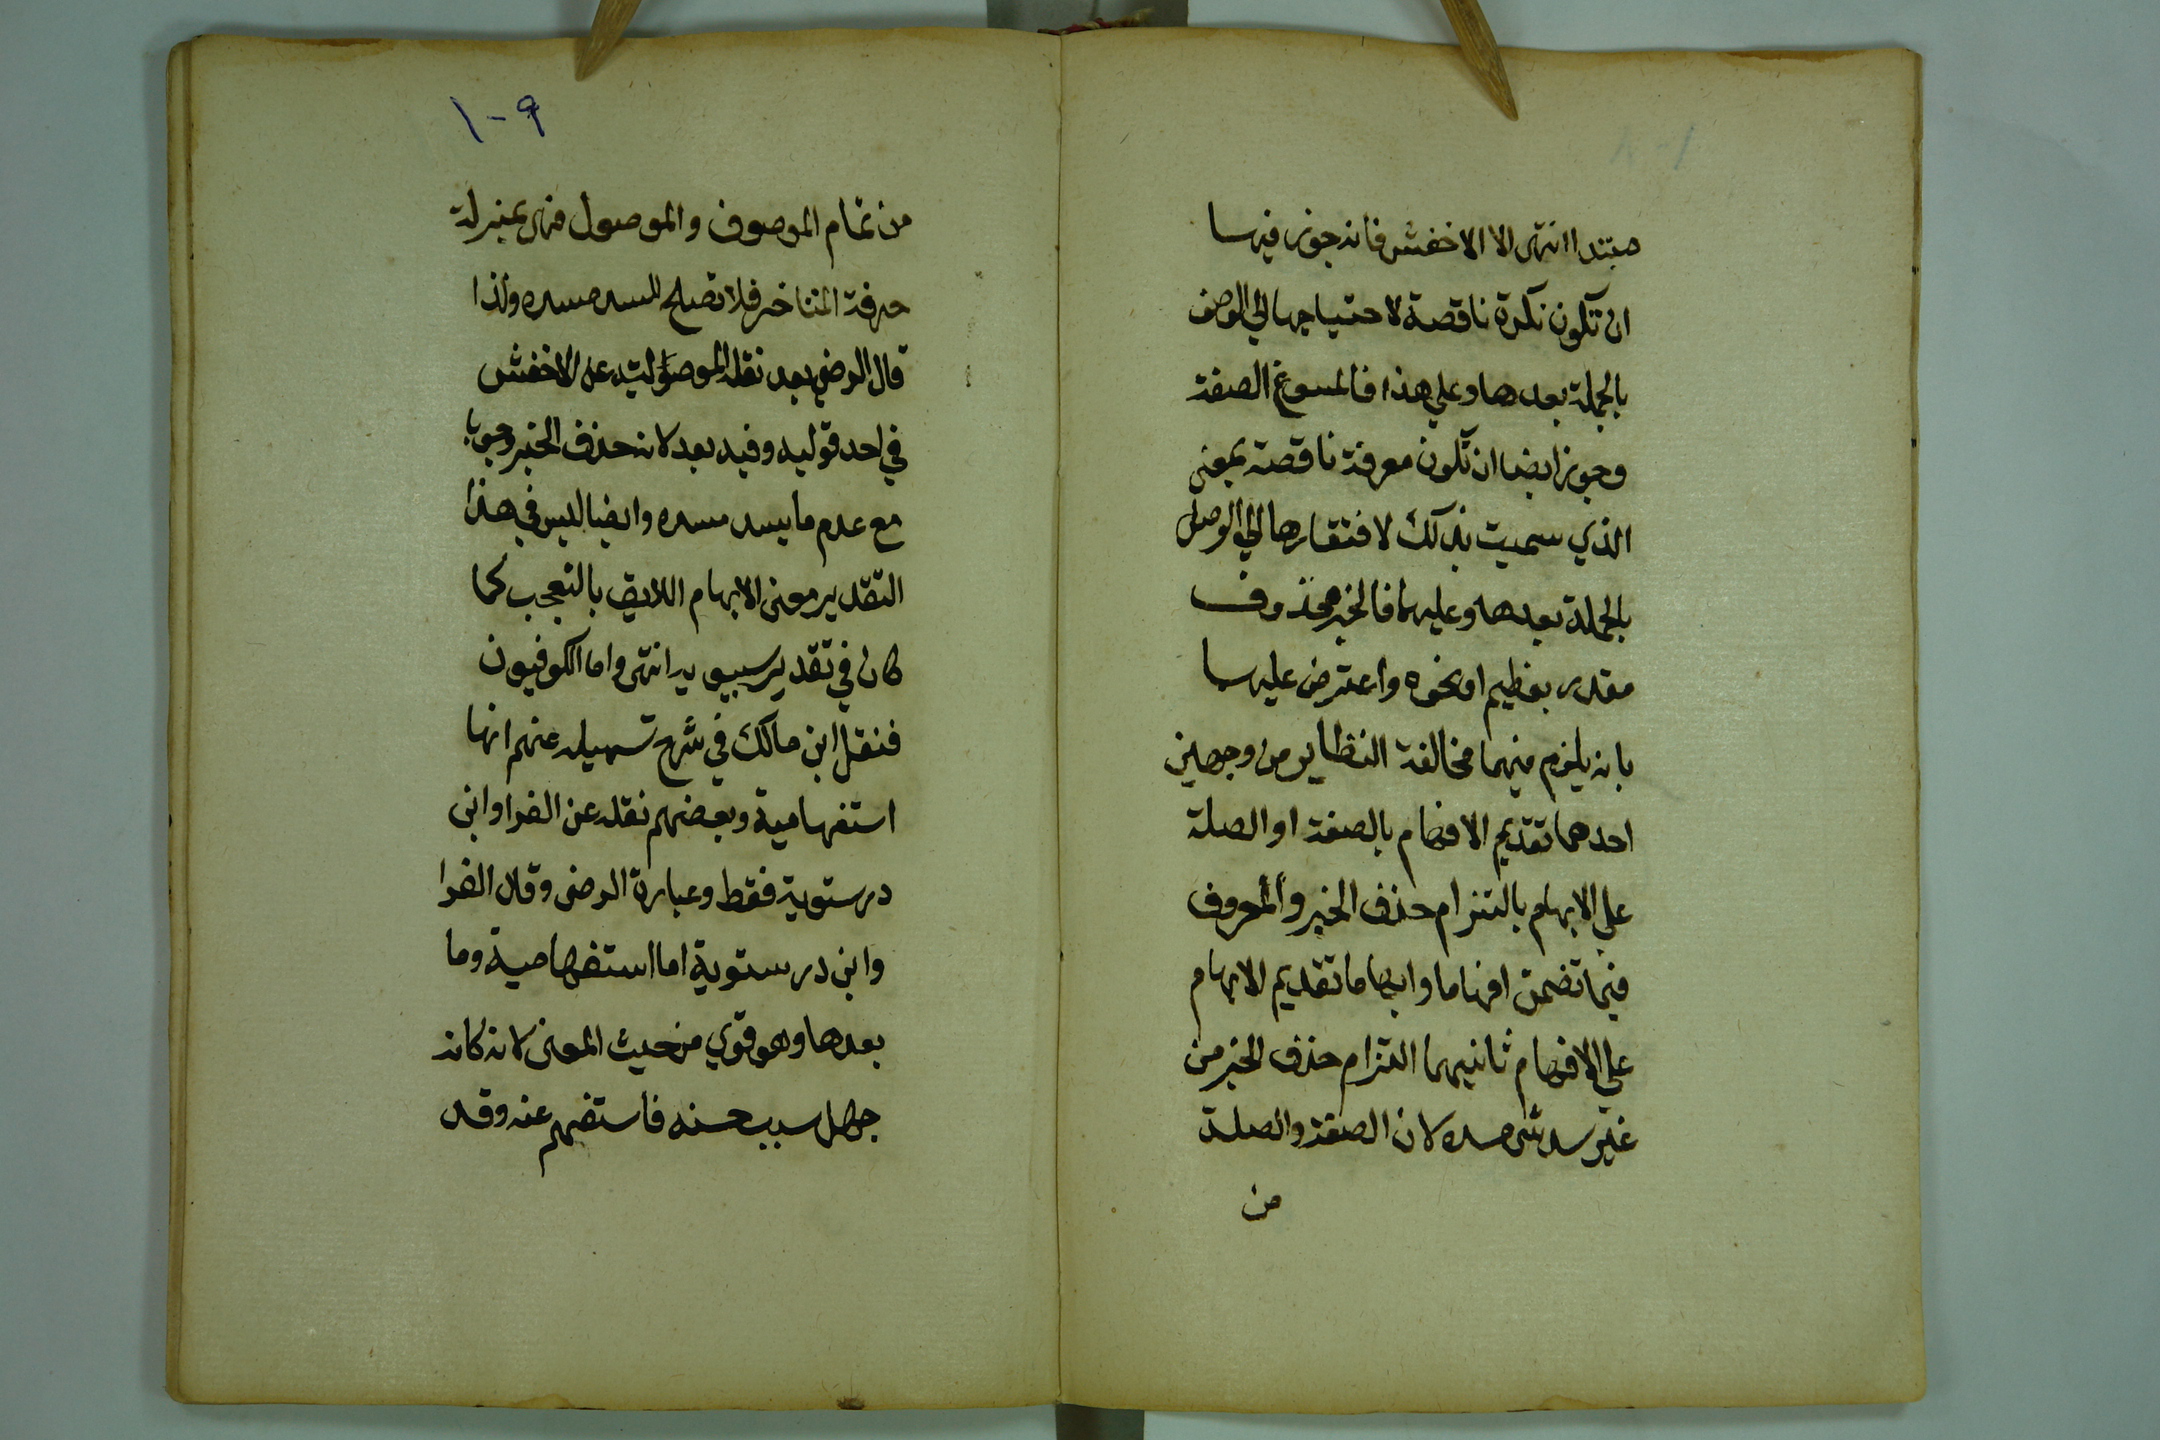 مبتدا انتهى الا الاخفش فانه جوز فيها
ان تكون نكرة ناقصة لاحتياجها الي الوصف
بالجملة بعدها وعلي هذا فالمسوغ الصفة
وجوز ايضا ان تكون معرفة ناقصة بمعنى
الذي سميت بذلك لافتقارها الي الوصل
بالجملة بعدها وعليهما فالخبر محذوف
مقدر بعظيم او نحوه واعترض عليها
بانه يلزم منهما مخالفة النظاير من وجهين
احدهما تقديم الافهام بالصفة او الصلة
علي الابهام بالتزام حذف الخبر والمعروف
فيما تضمن افهاما وابهاما تقديم الابهام
علي الافهام ثانيهما التزام حذف الخبر من
غير سد شي مسده لان الصفة والصلة
من
١٠٩
من تمام الموصوف والموصول فهي بمنزلة
حرفة المتاخر فلا تصلح للسد مسده ولذا
قال الرضي بعد نقله الموصولية عن الاخفش
في احد قوليه وفيه بعد لانه حذف الخبر وجوبا
مع عدم ما يسد مسده وايضا ليس في هذا
التقدير معنى الابهام اللايق بالتعجب كما
كان في تقدير سيبويه انتهى واما الكوفيون
فنقل ابن مالك في شرح تسهيله عنهم انها
استفهامية وبعضهم نقله عن الفرا وابن
درستوية فقط وعبارة الرضى وقال الفرا
وابن درستوية اما استفهامية وما
بعدها وهو قوي من حيث المعنى لانه كانه
جهل سبب حسنه فاستفهم عنه وقد